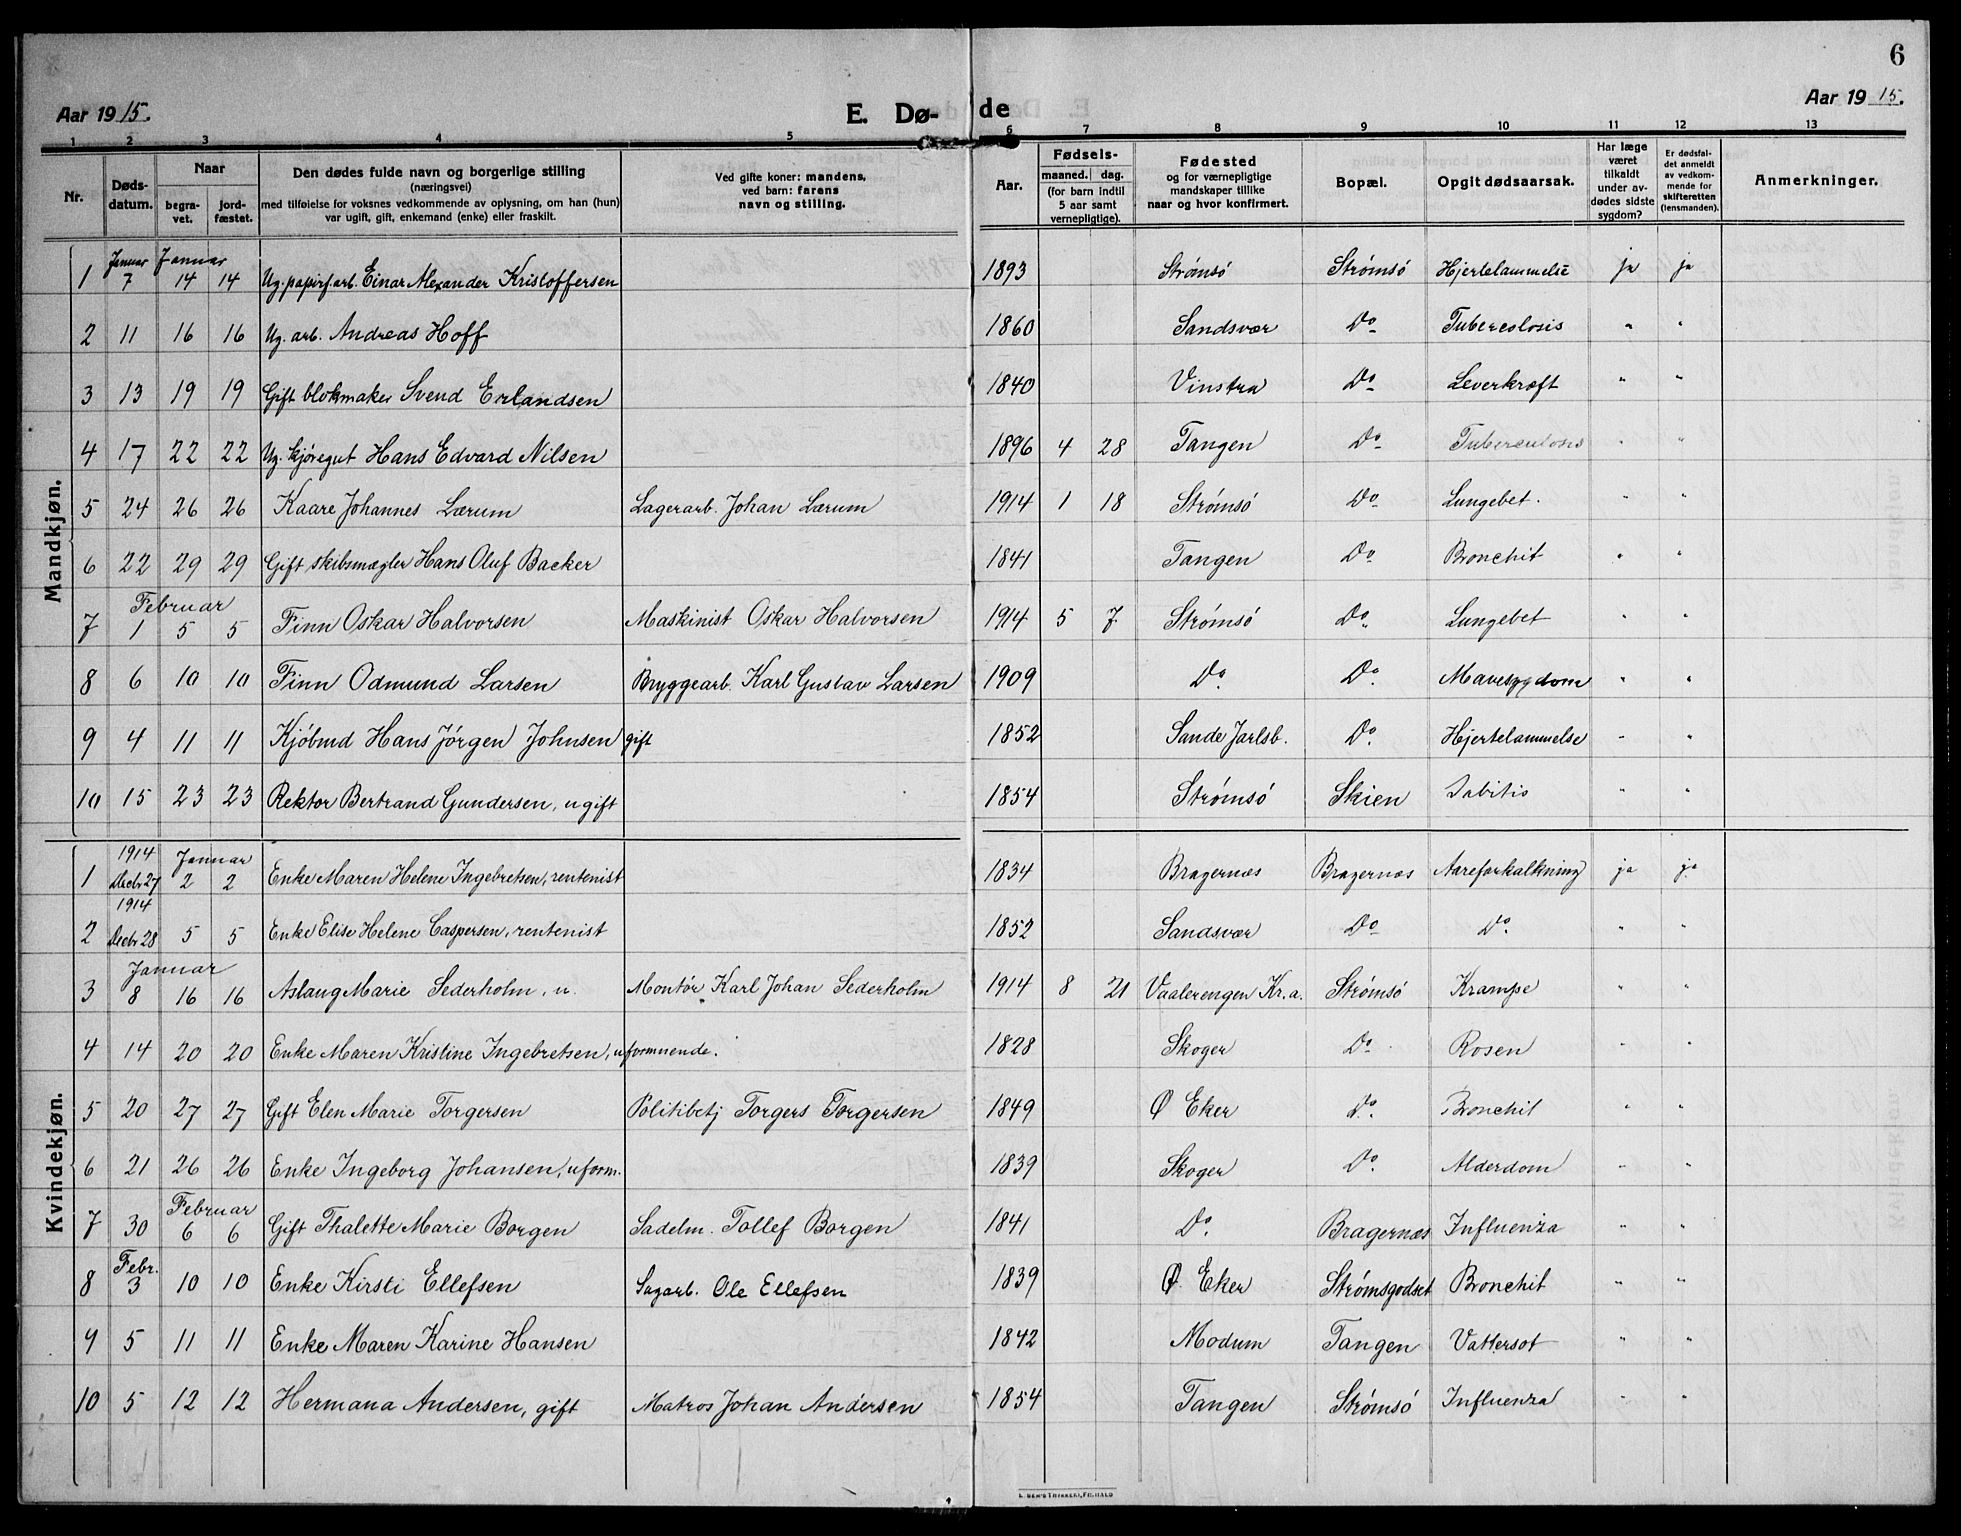 6
Aar 1915.
E. Dø-
de
Aar 1915.
1 2 3 4 5 6 7 8 9 10 11 12 13
Nr.
Døds-
datum.
Naar
begra-
vet.
jord-
fæstet.
Den dødes fulde navn og borgerlige stilling
(næringsvei)
med tilføielse for voksnes vedkommende av oplysning, om han (hun)
var ugift, gift, enkemand (enke) eller fraskilt.
Ved gifte koner: mandens,
ved barn: farens
navn og stilling.
Aar.
Fødsels-
maaned. dag.
(for barn indtil
5 aar samt
vernepligtige).
Fødested
og for værnepligtige
mandskaper tillike
naar og hvor konfirmert.
Bopæl.
Opgit dødsaarsak.
Har læge
været
tilkaldt
under av-
dødes sidste
sygdom?
Er dødsfal-
det anmeldt
av vedkom-
mende for
skifteretten
(lensmanden).
Anmerkninger.
Mandkjøn.
Januar Januar
1 7 14 14 Ug. papirf.arb. Einar Alexander Kristoffersen 1893 Strømsö Strømsö Hjertelammelse ja ja
2 11 16 16 Ug. arb. Andreas Hoff 1860 Sandsvær Do Tubercolosis " "
3 13 19 19 Gift blokmaker Svend Erlandsen 1840 Vinstra Do Leverkræft " "
4 17 22 22 Ug. kjøregut Hans Edvard Nilsen 1896 4 28 Tangen Do Tuberculosis " "
5 24 26 26 Kaare Johannes Lærum Lagerarb. Johan Lærum 1914 1 18 Strømsö Do Lungebet. " "
6 22 29 29 Gift skibsmægler Hans Oluf Backer 1841 Tangen Do Bronchit " "
Februar
7 1 5 5 Finn Oskar Halvorsen Maskinist Oskar Halvorsen 1914 5 7 Strømsö Do Lungebet " "
8 6 10 10 Finn Odmund Larsen Bryggearb. Karl Gustav Larsen 1909 Do Do Mavesygdom " "
9 4 11 11 Kjöbmd Hans Jörgen Johnsen gift 1852 Sande Jarlsb. Do Hjertelammelse " "
10 15 23 23 Rektor Bertrand Gundersen, ugift 1854 Strømsö Skien " "
Kvindekjøn.
1914 Januar
1 Decbr 27 2 2 Enke Maren Helene Ingebretsen, rentenist 1834 Bragernæs Bragernæs Aareforkalkning ja ja
1914
2 Decbr 28 5 5 Enke Elise Helene Caspersen, rentenist 1852 Sandsvær Do Do " "
Januar
3 8 16 16 Aslaug Marie Sederholm, u. Montör Karl Johan Sederholm 1914 8 21 Vaalerengen Kr.a. Strømsö Krampe " "
4 14 20 20 Enke Maren Kristine Ingebretsen, uformuende. 1828 Skoger Do Rosen " "
5 20 27 27 Gift Elen Marie Torgersen Politibetj Torgers Torgersen 1849 Ø Eker Do. Bronchit " "
6 21 26 26 Enke Ingeborg Johansen, uform. 1839 Skoger Do Alderdom " "
Februar
7 30 6 6 Gift Thalette Marie Borgen Sadelm. Tollef Borgen 1841 Do Bragernæs Influenza " "
Febr.
8 3 10 10 Enke Kirsti Ellefsen Sagarb. Ole Ellefsen 1839 Ø. Eker Strømsgodset Bronchit " "
9 5 11 11 Enke Maren Karine Hansen 1842 Modum Tangen Vattersot " "
10 5 12 12 Hermana Andersen, gift Matros Johan Andersen 1854 Tangen Strømsö Influenza " "